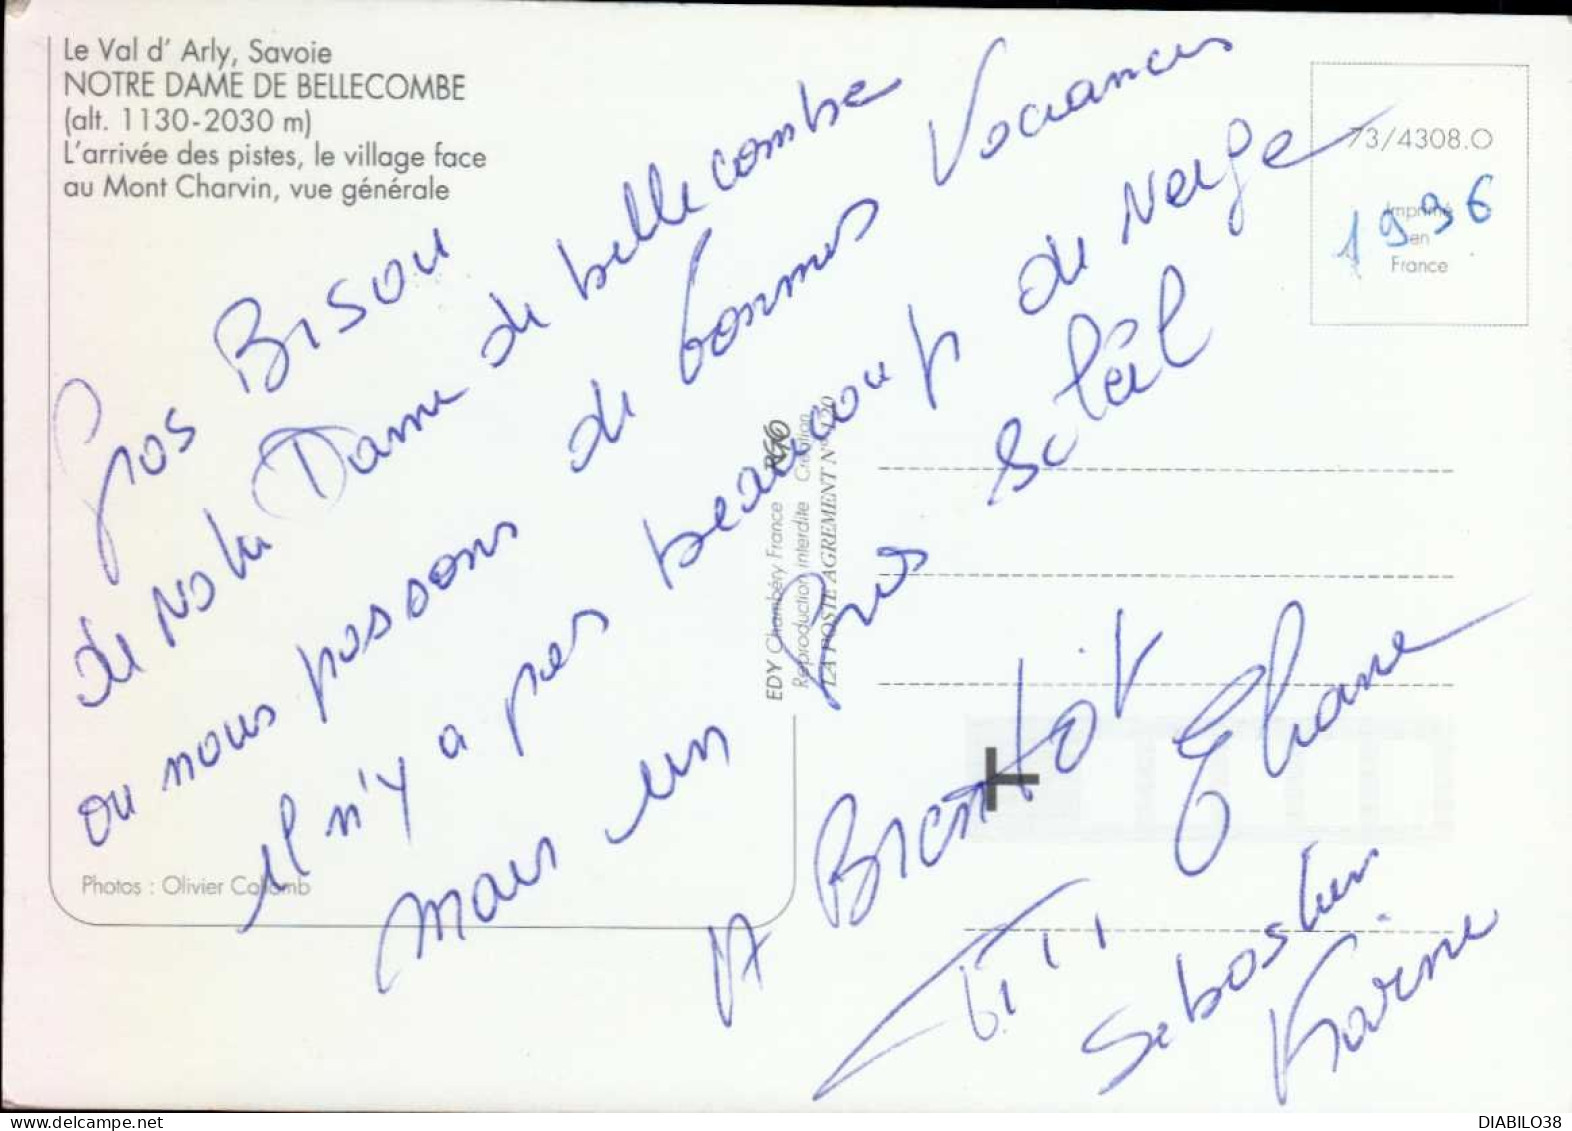 Le Val d' Arly, Savoie
NOTRE DAME DE BELLECOMBE
(alt. 1130-2030 m)
L'arrivée des pistes, le village face
au Mont Charvin, vue générale
73/4308.O
Imprimé
en
France
1996
Gros Bisou
de Notre Dame de bellecombe
ou nous passons de bonnes Vacances
il n'y a pas beaucoup de neige
mais un gros Soleil
A Bientôt
Titi
Sebastien
Karine
EDY Chambéry France
Reproduction interdite Création
LA POSTE AGREMENT N° 120
Photos : Olivier Collomb
DIABILO38